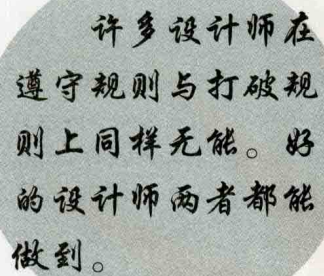 许多设计师在
遵守规则与打破规
则上同样无能。好
的设计师两者都能
做到。